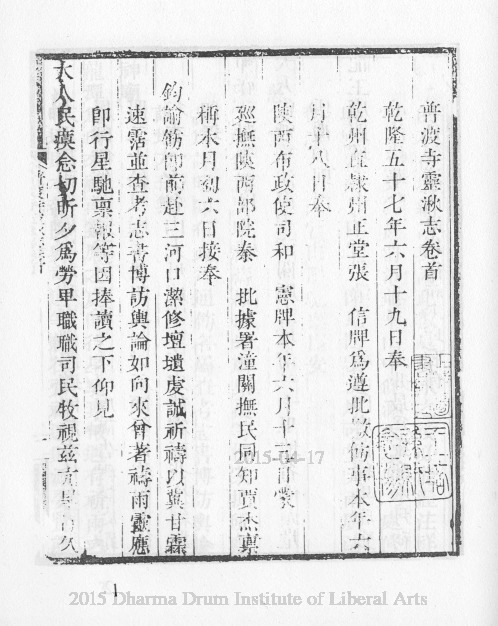 普渡寺靈湫志卷首
乾隆五十七年六月十九日奉
乾州直隸州正堂張　信牌爲遵批檄飭事本年六
月十八日奉
陝西布政使司和　憲牌本年六月十三日蒙
廵撫陝西部院秦　批據署潼關撫民同知賈杰稟
稱本月初六日接奉
鈞諭飭卽前赴三河口潔修壇壝虔誠祈禱以冀甘霖
速霈並查考志書博訪輿論如向來曾著禱雨靈應
卽行星馳稟報等因捧讀之下仰見
大人民瘼念切昕夕爲勞卑職職司民牧視茲亢旱日久
2015-04-17
1
2015 Dharma Drum Institute of Liberal Arts